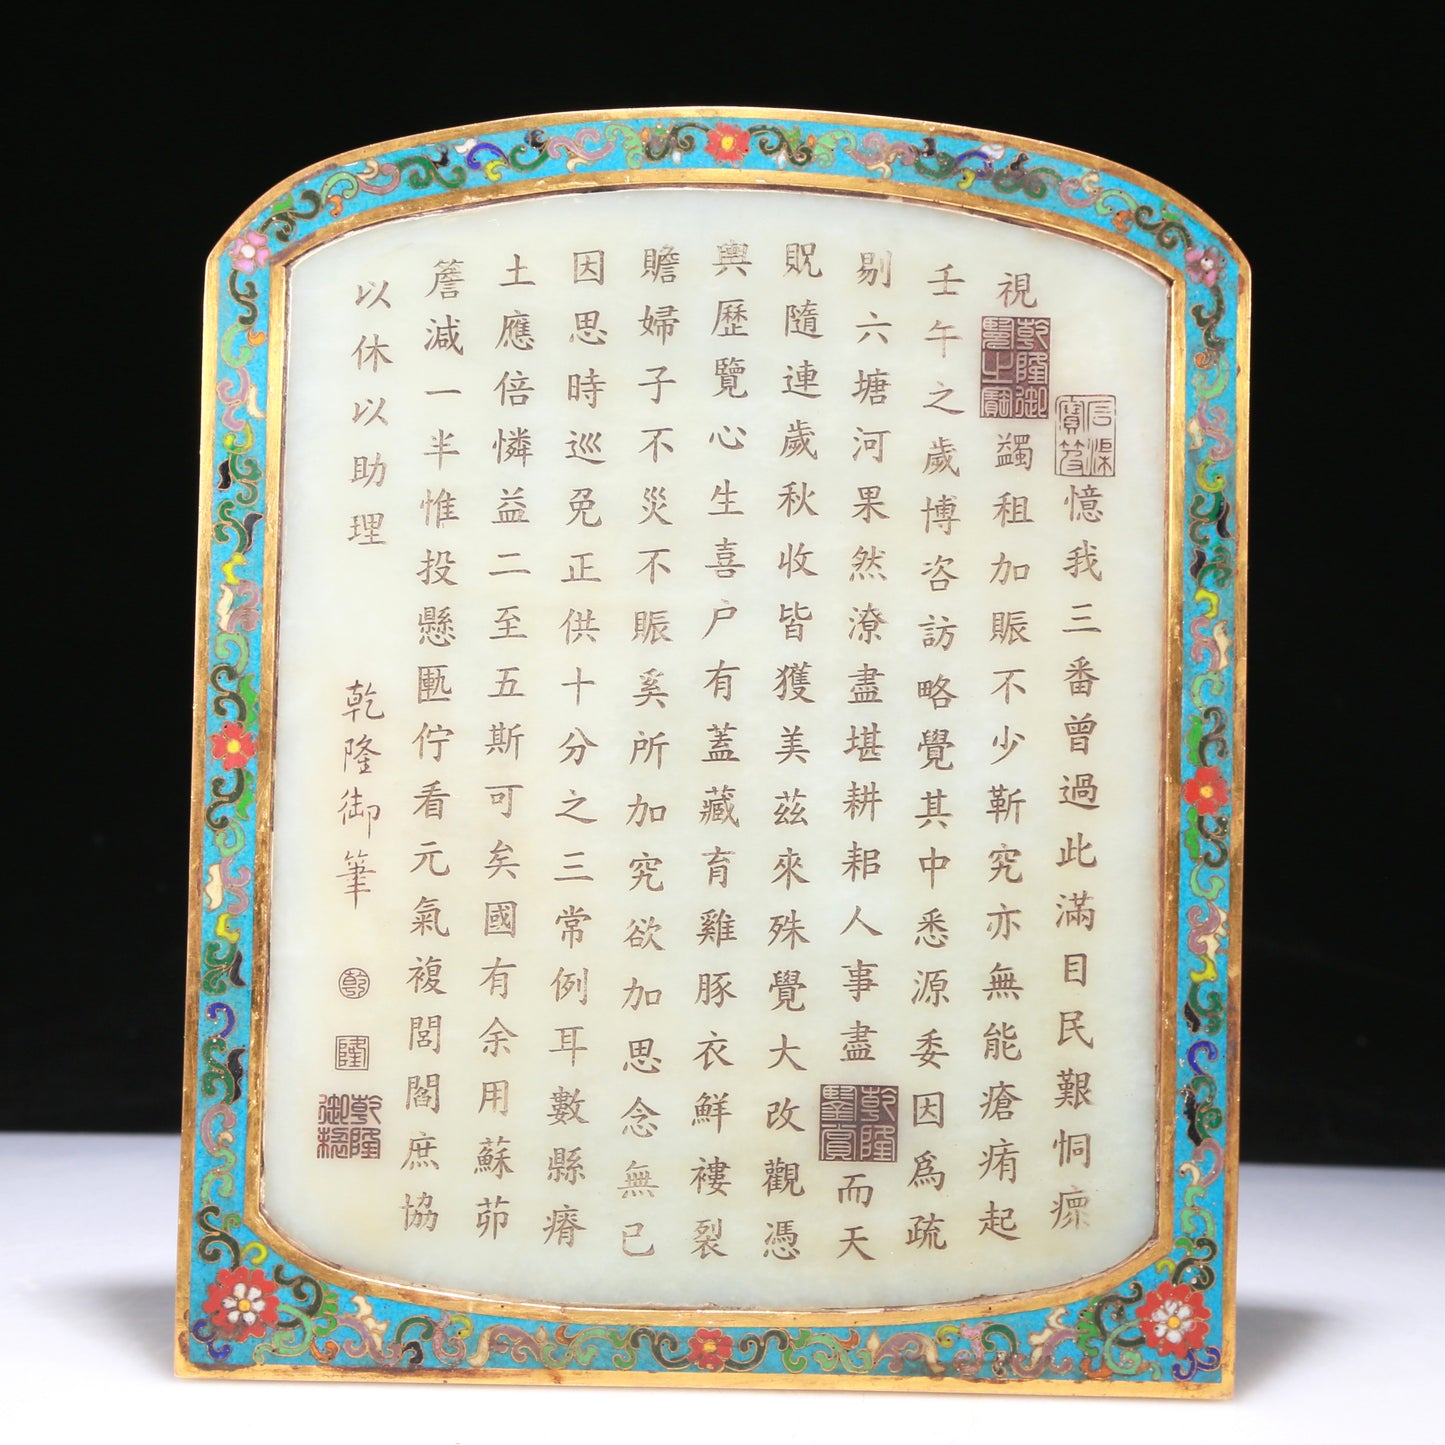 憶我三番曾過此滿目民艱恫瘝
視
乾隆御覽之寶
蠲租加賑不少靳究亦無能瘡痏起
壬午之歲博咨訪略覺其中悉源委因爲疏
剔六塘河果然潦盡堪耕耜人事盡
乾隆鑒賞
而天
貺隨連歲秋收皆獲美茲來殊覺大改觀憑
輿歷覽心生喜户有蓋藏育雞豚衣鮮褸裂
贍婦子不災不賑奚所加究欲加思念無已
因思時巡免正供十分之三常例耳數縣瘠
土應倍憐益二至五斯可矣國有余用蘇茆
簷減一半惟投懸匭佇看元氣複閭閻庶協
以休以助理
乾隆御筆
乾
隆